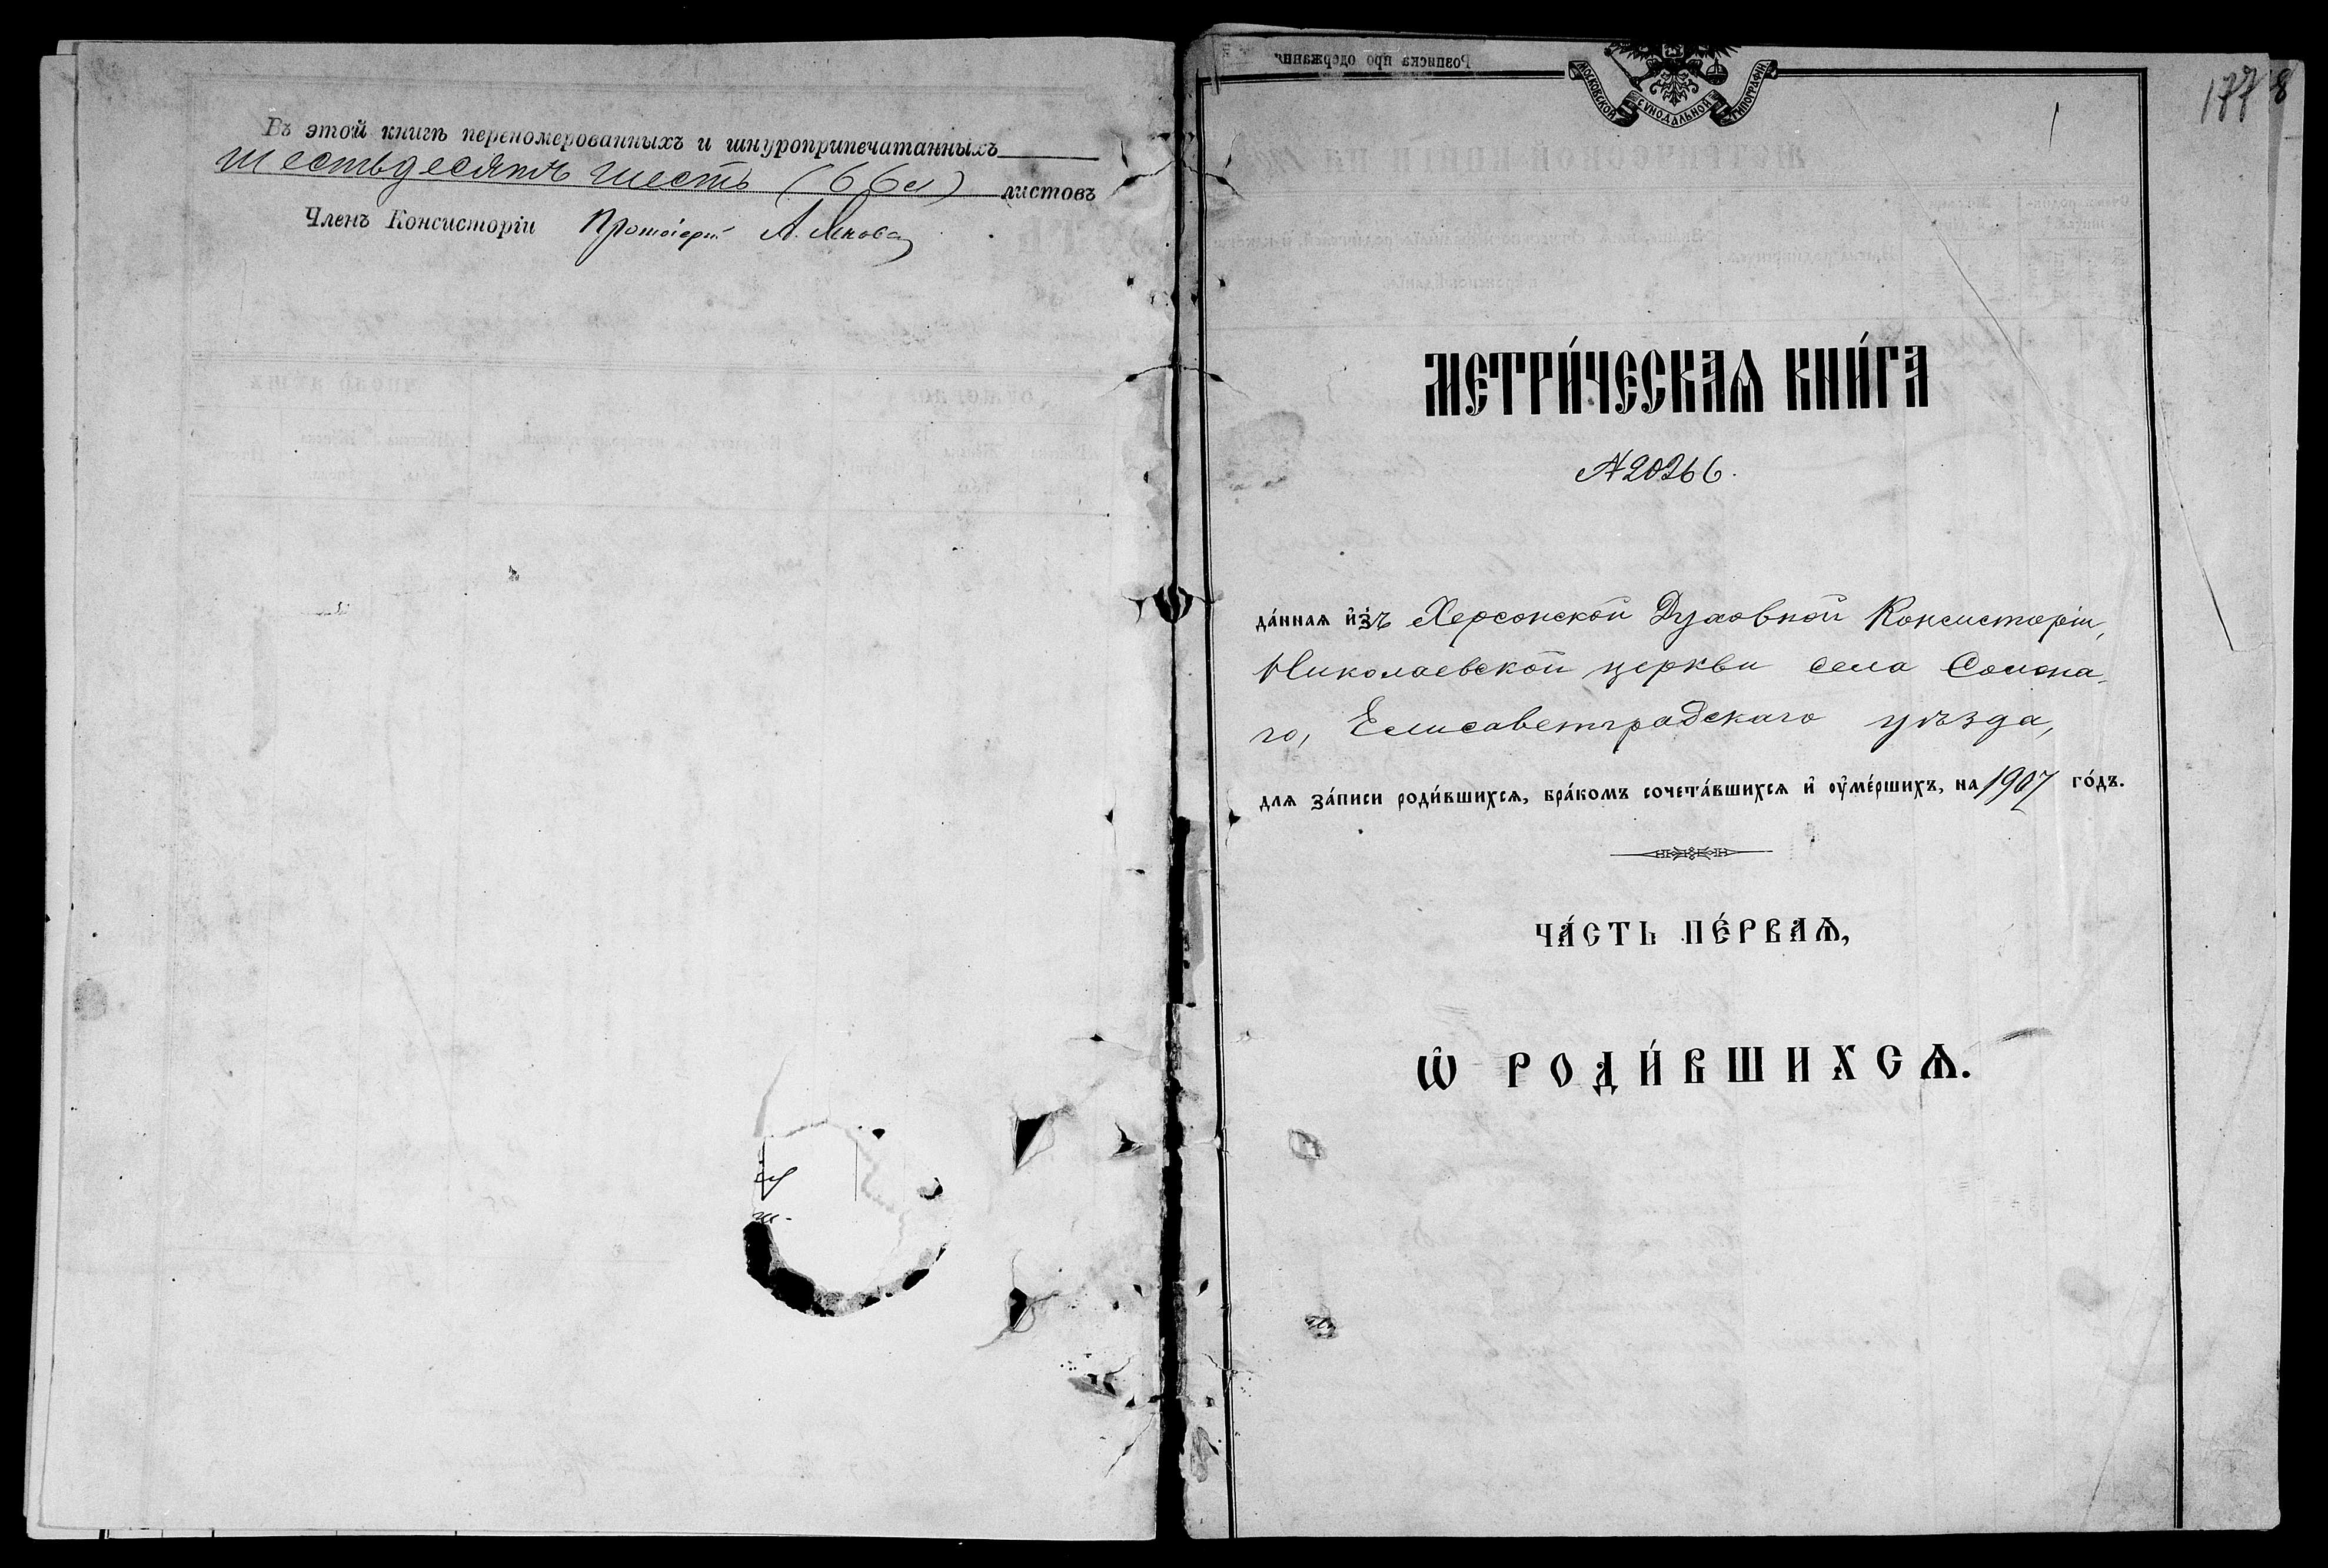 Въ этой книгѣ переномерованныхъ и шнуроприпечатанныхъ
шестьдесятъ шесть (66 л) листовъ
Членъ Консисторіи Протоіерей А.
Розписка про одержання
МОСКОВСКОЙ СѴНОДАЛЬНОЙ ТИПОГРАФІИ
1
177
8
МЕТРИ́ЧЕСКАѦ КНИ́ГА
№ 20266.
да́ннаѧ и҆зъ Херсонской Духовной Консисторіи,
Николаевской церкви села Солона-
го, Елисаветградскаго уѣзда,
длѧ за́писи роди́вшихсѧ, бра́комъ сочета́вшихсѧ и҆ оу҆ме́ршихъ, на 1907 го́дъ.
ЧА́СТЬ ПЕ́РВАѦ,
Ѡ҆ РОДИ́ВШИХСѦ.